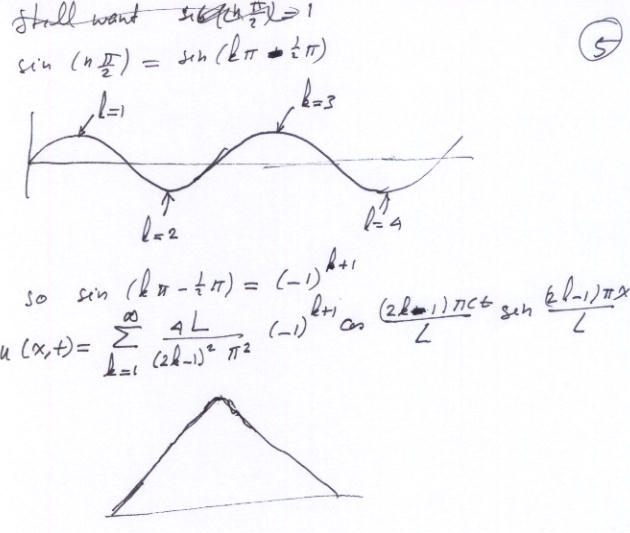 Still want sin (n π/2) = 1
⑤
sin (n π/2) = sin (kπ - ½π)
k=1
k=3
k=2
k=4
so sin (kπ - ½π) = (-1)^{k+1}
u (x,t) = ∑_{k=1}^{∞} 4L/((2k-1)² π²) (-1)^{k+1} cos (2k-1)πct/L sin (2k-1)πx/L